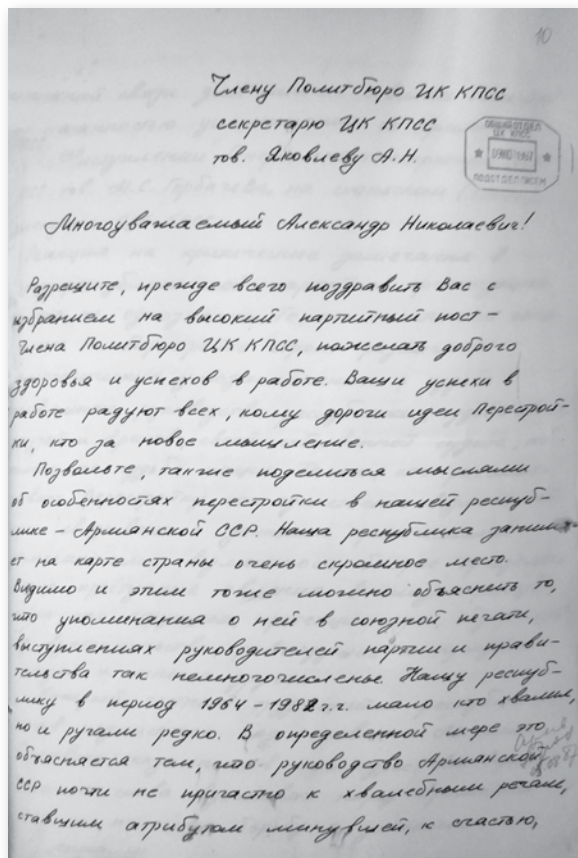 10
Члену Политбюро ЦК КПСС
секретарю ЦК КПСС
тов. Яковлеву А.Н.
ОБЩИЙ ОТДЕЛ
ЦК КПСС
1987
ПОДОТДЕЛ ПИСЕМ
Многоуважаемый Александр Николаевич!
Разрешите, прежде всего поздравить Вас с
избранием на высокий партийный пост –
члена Политбюро ЦК КПСС, пожелать доброго
здоровья и успехов в работе. Ваши успехи в
работе радуют всех, кому дороги идеи Перестрой-
ки, кто за новое мышление.
Позвольте, также поделиться мыслями
об особенностях перестройки в нашей респуб-
лике – Армянской ССР. Наша республика занима-
ет на карте страны очень скромное место.
Видимо и этим тоже можно объяснить то,
что упоминания о ней в союзной печати,
выступлениях руководителей партии и прави-
тельства так немногочисленны. Нашу респуб-
лику в период 1964 – 1982 г.г. мало кто хвалил,
но и ругали редко. В определенной мере это
объясняется тем, что руководство Армянской
ССР почти не причастно к хвалебным речам,
ставшим атрибутом минувшей, к счастью,